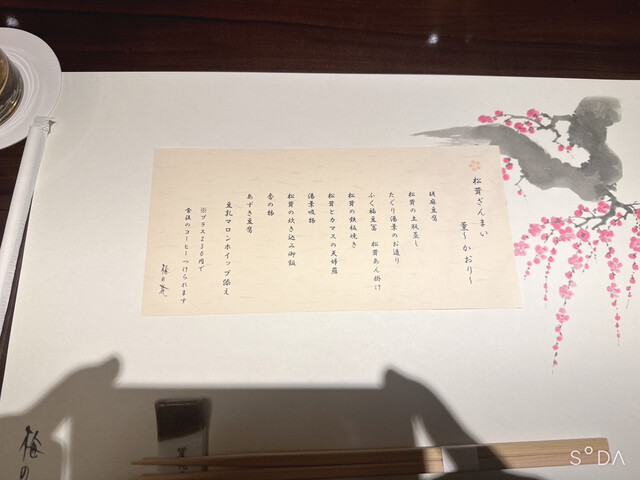 松茸ざんまい
薫〜かおり〜
胡麻豆腐
松茸の土瓶蒸し
たぐり湯葉のお造り
ふく福豆冨 松茸あん掛け
松茸の鉄板焼き
松茸とカマスの天婦羅
湯葉吸物
松茸の炊き込み御飯
香の物
あずき豆腐
豆乳マロンホイップ添え
※プラス230円で
食後のコーヒーつけられます
梅の花
梅の
SODA